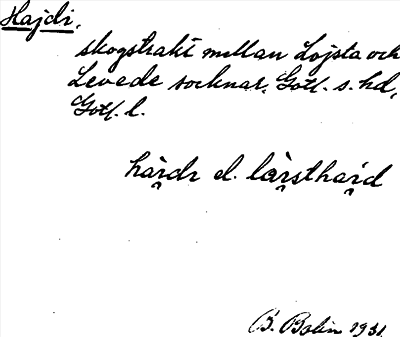 Hajdi,
skogstrakt mellan Lojsta och
Levede socknar, Gotl. s. hd,
Gotl. l.
hàrdr el. làrsthard
B. Bolin 1931.